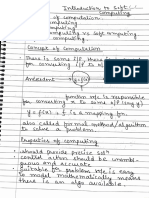 Introduction to Soft
Computing
of computation:
computing
computing
computing vs soft computing
computing
Concept of Computation
there is some i/p, there is some
for converting i/p to o/p
Antecedent
is responsible
for converting x to some o/p (say y)
y = f(x)
f is a mapping for
also called formal method/algorithm
to solve a problem.
Properties of computing
→ should provide precise solⁿ
→ control action should be unamb-
iguous and accurate
→ suitable for problem which is easy
to model mathematically means
there is an algo available.